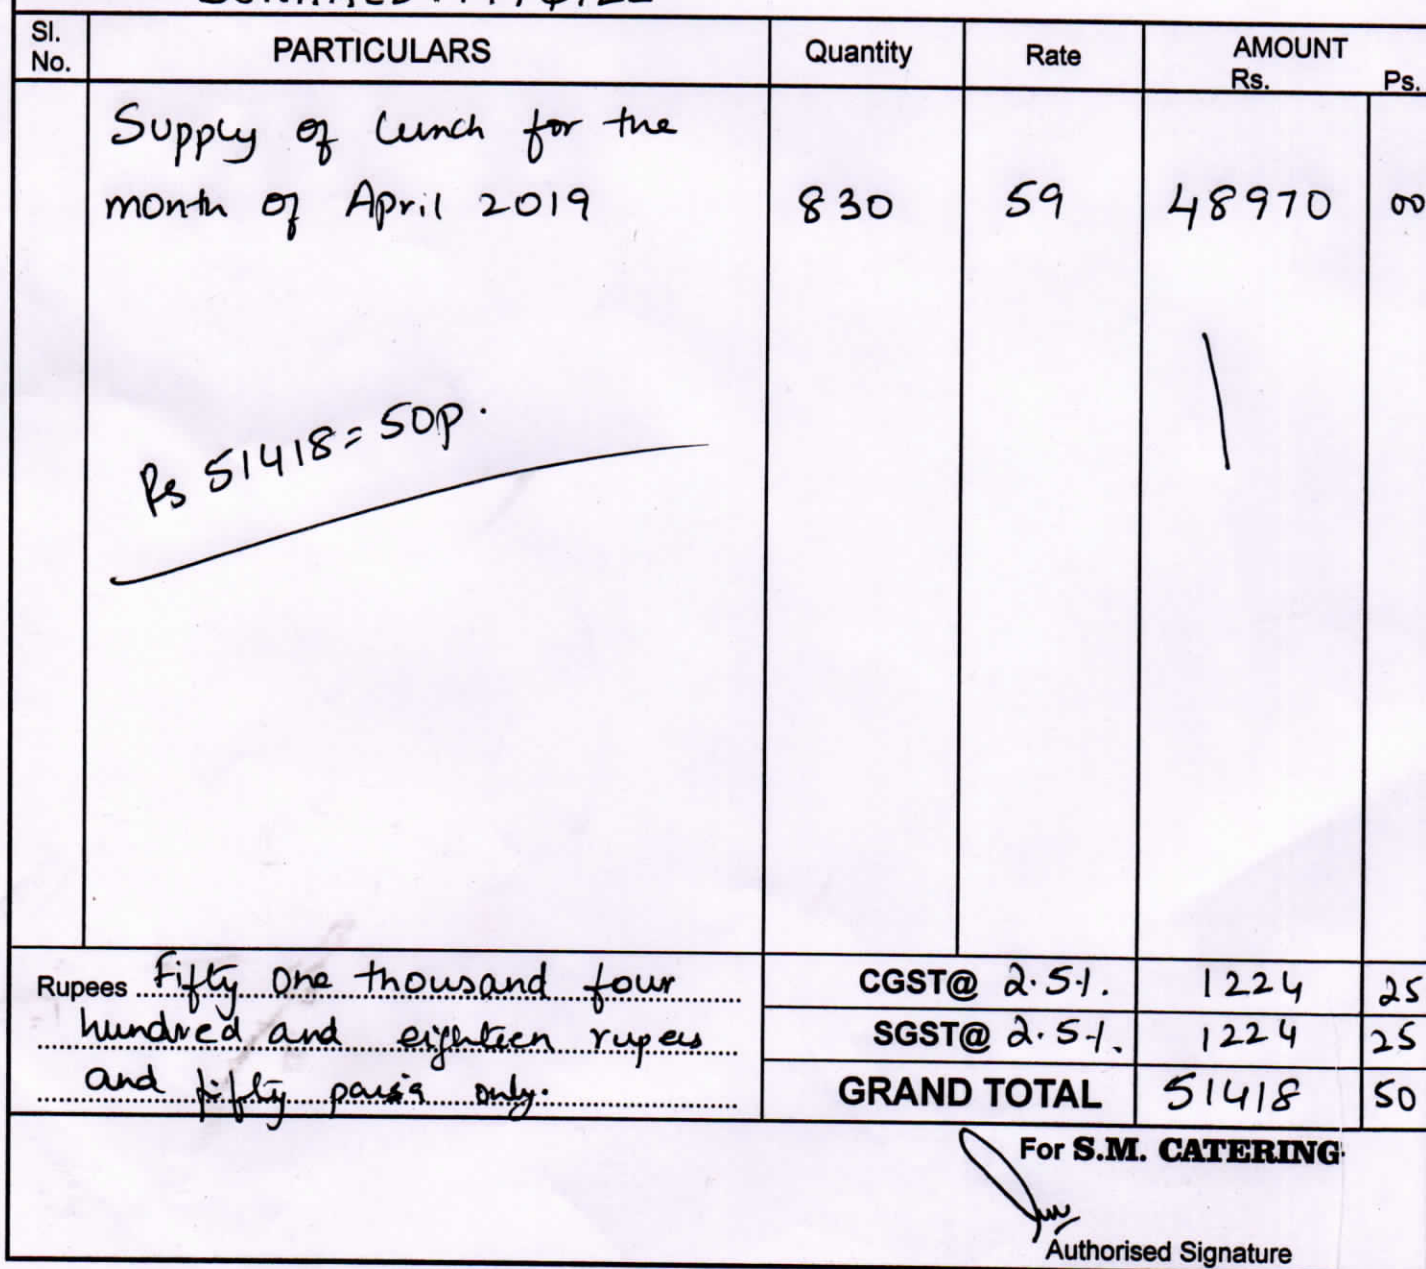 Sl. No. PARTICULARS Quantity Rate AMOUNT Rs. Ps.
Supply of Lunch for the
month of April 2019 830 59 48970 00
Rs 51418=50p.
Rupees Fifty one thousand four
hundred and eighteen rupees
and fifty paisa only.
CGST@ 2.5%. 1224 25
SGST@ 2.5%. 1224 25
GRAND TOTAL 51418 50
For S.M. CATERING
Authorised Signature